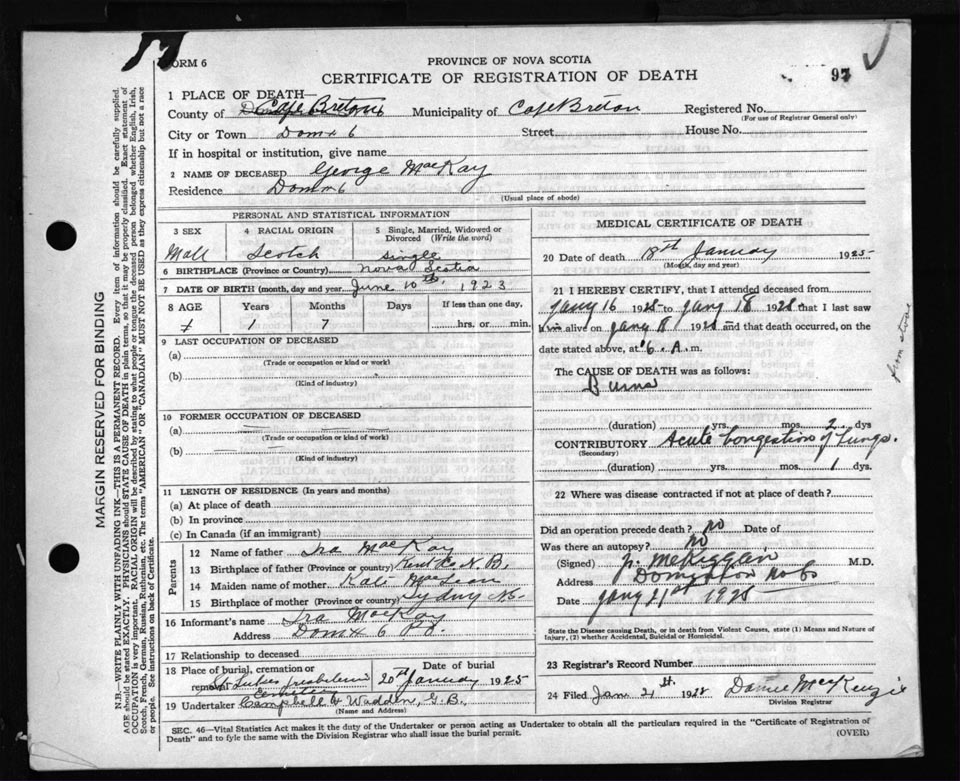 FORM 6
PROVINCE OF NOVA SCOTIA
CERTIFICATE OF REGISTRATION OF DEATH
97
1 PLACE OF DEATH—
County of Cape Breton Municipality of Cape Breton Registered No.
(For use of Registrar General only)
City or Town Dom # 6 Street House No.
If in hospital or institution, give name
2 NAME OF DECEASED George MacKay
Residence Dom # 6
(Usual place of abode)
PERSONAL AND STATISTICAL INFORMATION
3 SEX
Male
4 RACIAL ORIGIN
Scotch
5 Single, Married, Widowed or Divorced (Write the word)
Single
6 BIRTHPLACE (Province or Country) Nova Scotia
7 DATE OF BIRTH (month, day and year) June 10th, 1923
8 AGE Years Months Days If less than one day,
1 7 hrs. or min.
9 LAST OCCUPATION OF DECEASED
(a)
(Trade or occupation or kind of work)
(b)
(Kind of industry)
10 FORMER OCCUPATION OF DECEASED
(a)
(Trade or occupation or kind of work)
(b)
(Kind of industry)
11 LENGTH OF RESIDENCE (In years and months)
(a) At place of death
(b) In province
(c) In Canada (if an immigrant)
Parents
12 Name of father Ira MacKay
13 Birthplace of father (Province or country) Kent Co N.B.
14 Maiden name of mother Kati MacLean
15 Birthplace of mother (Province or country) Sydny
16 Informant's name Ira MacKay
Address Dom # 6
17 Relationship to deceased
18 Place of burial, cremation or removal St Lukes Cemetery
Date of burial
20th January 1925
19 Undertaker Campbell & Wadden, G.B.
(Name and Address)
MEDICAL CERTIFICATE OF DEATH
20 Date of death 18th January 1925
(Month, day and year)
21 I HEREBY CERTIFY, that I attended deceased from
Jany 16 1925 to Jany 18 1925 that I last saw
him alive on Jany 18 1925 and that death occurred, on
date stated above, at 6. A. m.
The CAUSE OF DEATH was as follows:
Burns
(duration) yrs. mos. 2 dys
CONTRIBUTORY Acute Congestion of Lungs.
(Secondary)
(duration) yrs. mos. 1 dys.
22 Where was disease contracted if not at place of death?
Did an operation precede death? no Date of
Was there an autopsy? no
(Signed) McKeggan M.D.
Address Dominion No 6
Date Jany 21st 1925
State the Disease causing Death, or in death from Violent Causes, state (1) Means and Nature of
Injury, (2) whether Accidental, Suicidal or Homicidal.
23 Registrar's Record Number
24 Filed Jan 21st. 1925 MacKenzie
Division Registrar
SEC. 46—Vital Statistics Act make it the duty of the Undertaker or person acting as Undertaker to obtain all the particulars required in the "Certificate of Registration of
Death" and to fyle the same with the Division Registrar who shall issue the burial permit.
(OVER)
MARGIN RESERVED FOR BINDING
N.B.—WRITE PLAINLY, WITH UNFADING INK—THIS IS A PERMANENT RECORD. Every item of information should be carefully supplied.
AGE should be stated EXACTLY. PHYSICIANS should STATE CAUSE OF DEATH in plain terms, so that it may be properly classified. Exact statement of
OCCUPATION is very important. RACIAL ORIGIN will be described by stating to what people or tongue the deceased person belonged whether English, Irish,
Scotch, French, German, Russian, Ruthenian, etc. The terms "AMERICAN" OR "CANADIAN" MUST NOT BE USED as they express citizenship but not a race
or people. See instructions on back of Certificate.